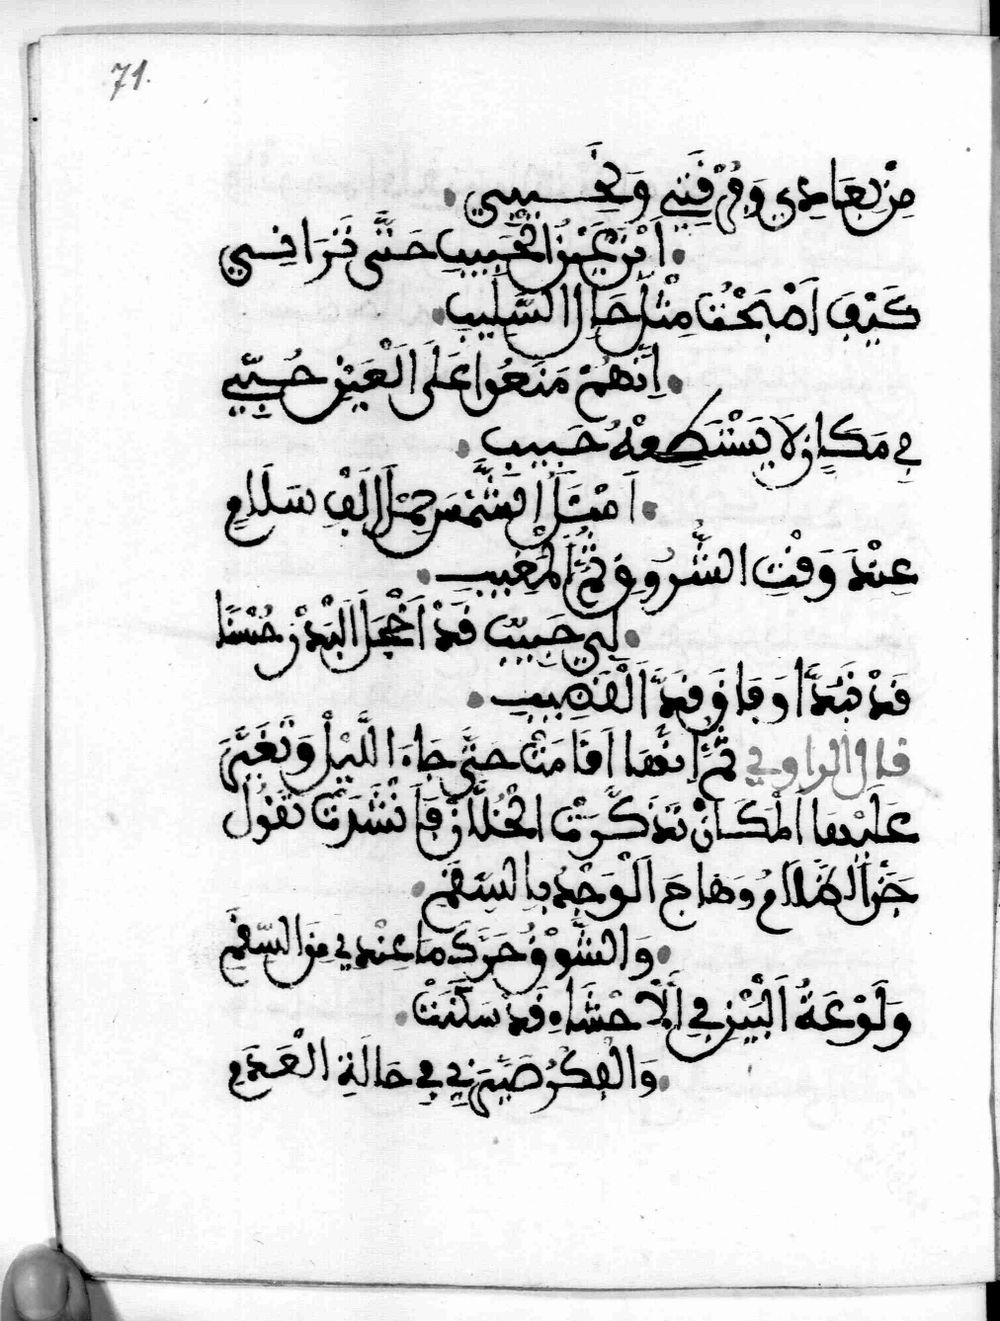 71.
مِنْ بِعَادِي وَفُرْقَتِي وَنَحِيبِي
اَيْنَ عَيْنُ الْحَبِيبِ حَتَّى تَرَانِي
كَيْفَ اَصْبَحْتُ مِثْلَ حَالِ السَّلِيبِ
اِنَّهُمْ مَنَعُوا عَلَى الْعَيْنِ حُبِّي
فِي مَكَانٍ لَا يَسْتَطِعْهُ حَبِيبِ
اَسْئَلُ الشَّمْسَ حَمْلَ اَلْفِ سَلَامٍ
عِنْدَ وَقْتِ الشُّرُوقِ ثُمَّ الْمَغِيبِ
لِي حَبِيبٌ قَدْ اَخْجَلَ الْبَدْرَ حُسْنًا
قَدْ تَبَدَّا وَفَاقَ قَدَّ الْقَضِيبِ
قال الراوي ثُمَّ اِنَّهَا اَقَامَتْ حَتَّى جَاءَ اللَّيْلُ وَتَغَيَّمَ
عَلَيْهَا الْمَكَانْ تَذَكَّرَتْ الْخُلَّانْ فَاَنْشَدَتْ تَقُولُ
جَنَّ الظَّلَامُ وَهَاجَ الْوَجْدُ بِالسَّقَمِ
وَالشَّوْقُ حَرَّكَ مَا عِنْدِي مِنَ السَّقَمِ
وَلَوْعَةُ الْبَيْنِ فِي الْاَحْشَاءِ قَدْ سَكَنَتْ
وَالْفِكْرُ صَيَّرَنِي فِي حَالَةِ الْعَدَمِ